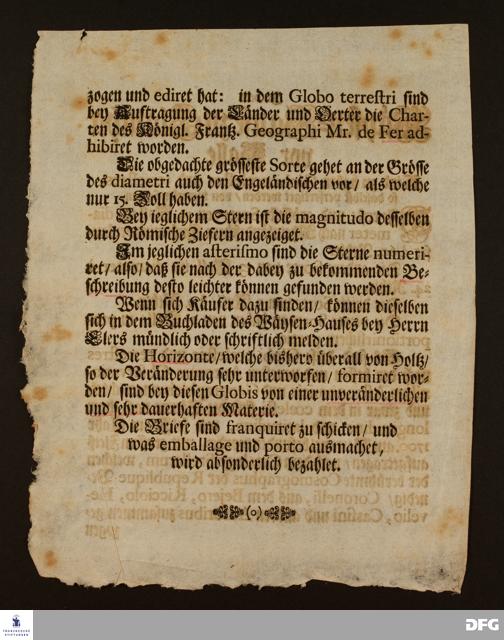 zogen und ediret hat: in dem Globo terrestri sind
bey Auftragung der Länder und Oerter die Char-
ten des Königl. Frantz. Geographi Mr. de Fer ad-
hibiret worden.
Die obgedachte grösseste Sorte gehet an der Grösse
des diametri auch den Engeländischen vor/ als welche
nur 15. Zoll haben.
Bey ieglichem Stern ist die magnitudo desselben
durch Römische Ziefern angezeiget.
Im jeglichen asterismo sind die Sterne numeri-
ret/ also/ daß sie nach der dabey zu bekommenden Be-
schreibung desto leichter können gefunden werden.
Wenn sich Käufer dazu finden/ können dieselben
sich in dem Buchladen des Wäysen-Hauses bey Herrn
Elers mündlich oder schriftlich melden.
Die Horizonte/ welche bishero überall von Holtz/
so der Veränderung sehr unterworfen/ formiret wor-
den/ sind bey diesen Globis von einer unveränderlichen
und sehr dauerhaften Materie.
Die Briefe sind franquiret zu schicken/ und
was emballage und porto ausmachet,
wird absonderlich bezahlet.
(o)
FRANCKESCHE
STIFTUNGEN
DFG